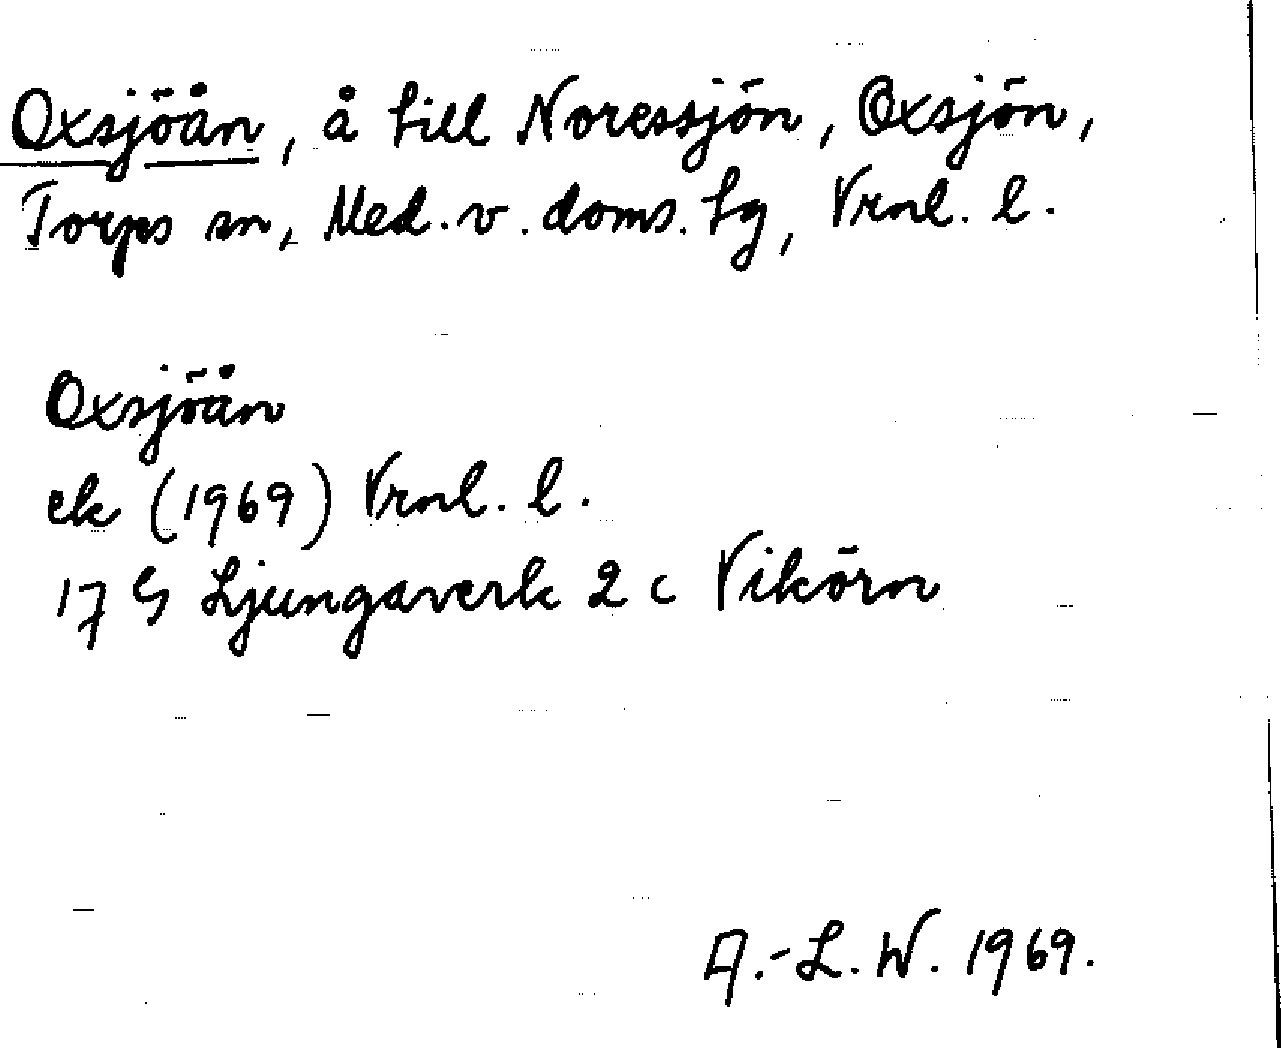 Oxsjöån, å till Noressjön, Oxsjön,
Torps sn, Med. v. doms. tg, Vrnl. l.
Oxsjöån
ek (1969) Vrnl. l.
17 G Ljungaverk 2 c Vikörn
A.-L. W. 1969.